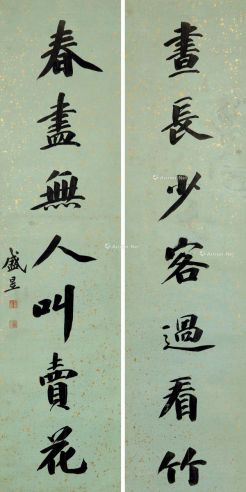 晝長少客過看竹
春盡無人叫賣花
盛昱